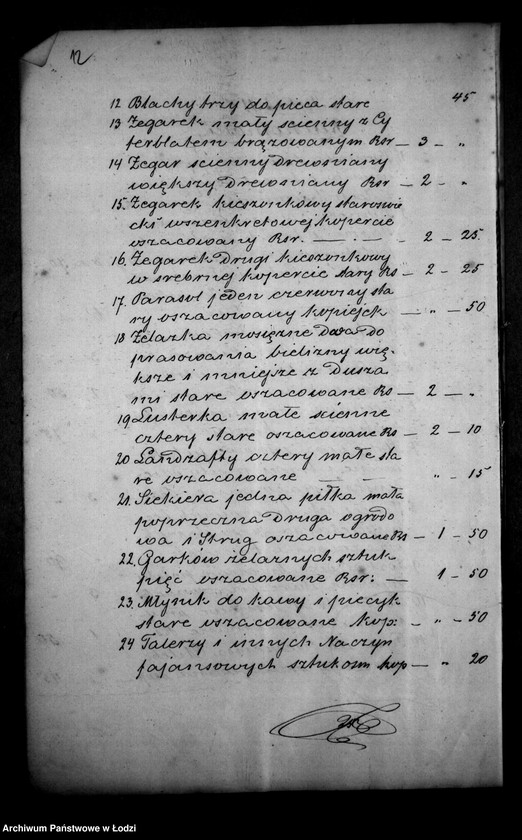 12
12 Blachy trzy do pieca stare 45
13 Zegarek mały scienny z Cy
ferblatem brązowanym Rsr — 3 — „
14 Zegar scienny drewniany
większy drewniany Rsr — 2 — „
15. Zegarek kieszonkowy staroświe
cki w kopercie
oszacowany Rsr. — 2 — 25.
16. Zegarek drugi kieszonkowy
w srebrnej kopercie stary Rs — 2 — 25
17. Parasol jeden czerwony sta
ry oszacowany kopiejek — „ — 50
18 Żelazka mosiężne dwa do
prasowania bielizny wię-
ksze i mniejsze z Dusza
mi stare oszacowane Rs — 2 — „
19 Lusterka małe scienne
cztery stare oszacowane Rs — 2 — 10
20 Landszafty cztery małe sta
re oszacowane — „ — 15
21. Siekiera jedna piłka mała
poprzeczna druga ogrodo
wa i Strug oszacowane Rs — 1 — 50
22. Garków żelaznych sztuk
pięć oszacowane Rsr: — 1 — 50
23. Młynik do kawy i piecyk
stare oszacowane kop: — „ — 50
24 Talerzy i innych Naczyn
fajansowych sztuk osm kop — „ 20
Archiwum Państwowe w Łodzi